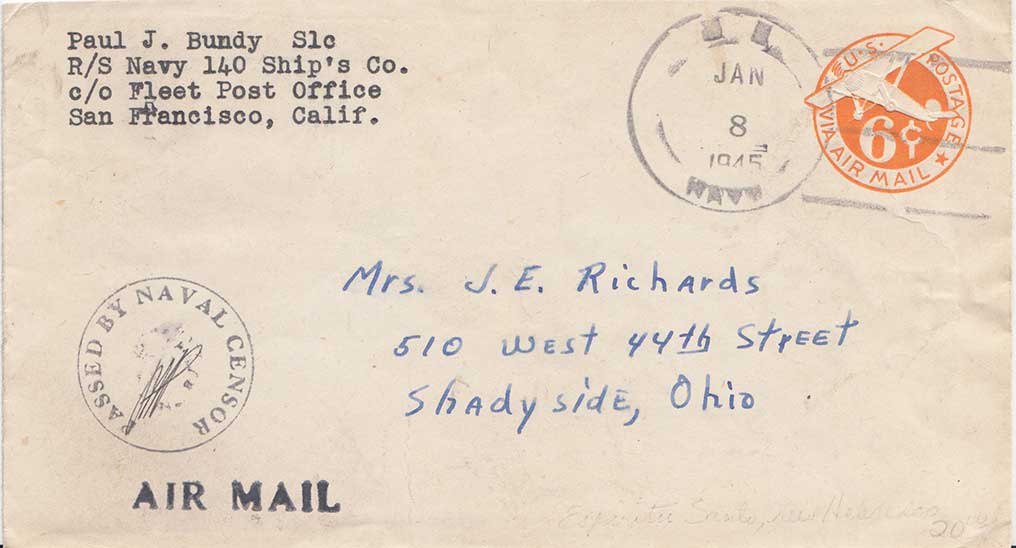 Paul J. Bundy Slc
R/S Navy 140 Ship's Co.
c/o Fleet Post Office
San Francisco, Calif.
JAN
8
1945
NAVY
U.S. POSTAGE
6¢
VIA AIR MAIL
Mrs. J. E. Richards
510 West 44th Street
Shadyside, Ohio
PASSED BY NAVAL CENSOR
AIR MAIL
Espiritu Santo, New Hebrides
20